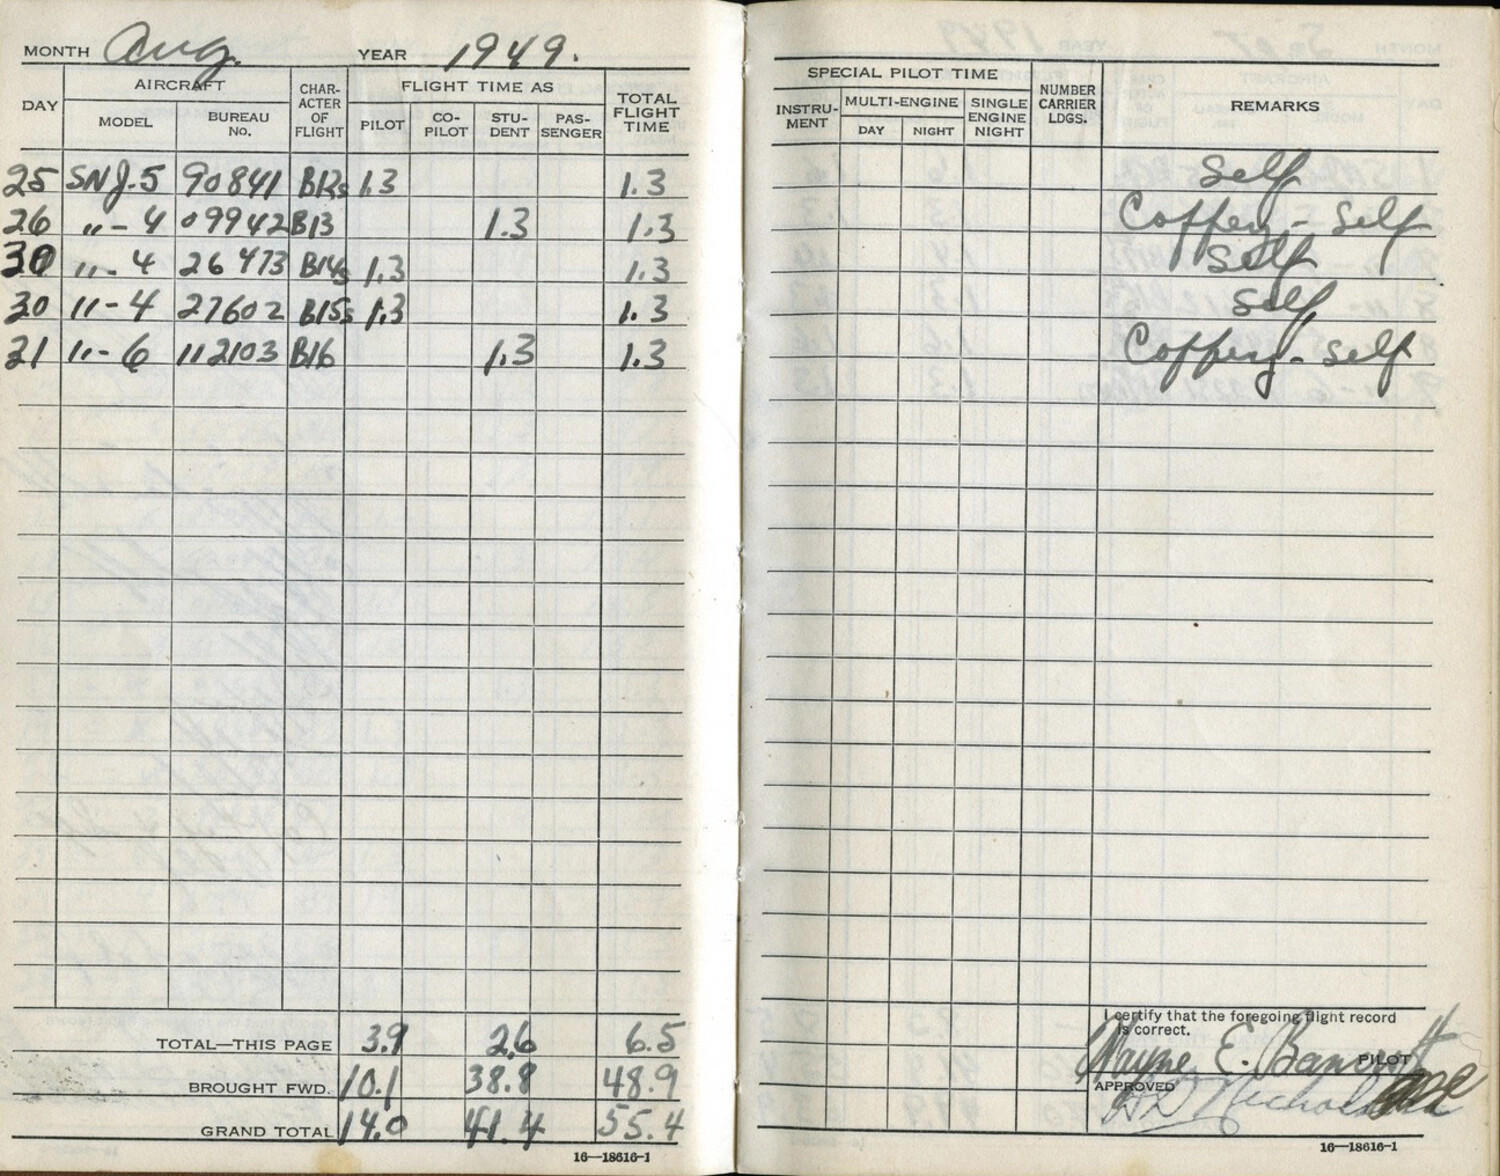 MONTH Aug. YEAR 1949.
DAY AIRCRAFT MODEL BUREAU No. CHARACTER OF FLIGHT FLIGHT TIME AS PILOT CO-PILOT STUDENT PASSENGER TOTAL FLIGHT TIME
25 SNJ-5 90841 B12s 1.3 1.3
26 "-4 09942 B13 1.3 1.3
30 "-4 26473 B14s 1.3 1.3
30 "-4 27602 B15s 1.3 1.3
31 "-6 112103 B16 1.3 1.3
TOTAL—THIS PAGE 3.9 2.6 6.5
BROUGHT FWD. 10.1 38.8 48.9
GRAND TOTAL 14.0 41.4 55.4
16—18616-1
SPECIAL PILOT TIME INSTRUMENT MULTI-ENGINE DAY NIGHT SINGLE ENGINE NIGHT NUMBER CARRIER LDGS. REMARKS
Self
Coffey - Self
Self
Self
Coffey - Self
I certify that the foregoing flight record
is correct.
Wayne E. Bancroft PILOT
APPROVED
16—18616-1